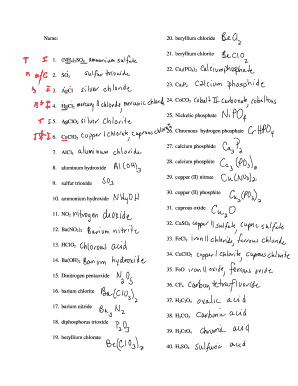 Name:
T I 1. (NH₄)₂SO₄ ammonium sulfate
2. SO₃ sulfur trioxide
3. AgCl silver chloride
4. HgCl₂
T I 5. AgClO₂ silver chlorite
6. CuClO₃
7. AlCl₃ aluminum chloride
8. aluminum hydroxide Al(OH)₃
9. sulfur trioxide SO₃
10. ammonium hydroxide NH₄OH
11. NO₂ nitrogen dioxide
12. Ba(NO₂)₂ Barium nitrite
13. HClO₂ Chlorous acid
14. Ba(OH)₂ Barium hydroxide
15. Dinitrogen pentaoxide N₂O₅
16. barium chlorite Ba(ClO₂)₂
17. barium nitride Ba₃N₂
18. diphosphorus trioxide P₂O₃
19. beryllium chlorate Be(ClO₃)₂
20. beryllium chloride
21. beryllium chlorite BeClO₂
22. Ca₃(PO₄)₂ Calcium phosphate
23. Ca₃P₂ Calcium phosphide
24. CoCO₃ cobalt II carbonate, cobaltous
25. Nickelic phosphate NiPO₄
26. Chromous hydrogen phosphate CrHPO₄
27. calcium phosphide Ca₃P₂
28. calcium phosphite Ca₃(PO₃)₂
29. copper (II) nitrate
30. copper (II) phosphite
31. cuprous oxide Cu₂O
32. CuSO₄ copper II sulfate, cupric sulfate
33. FeCl₂ iron II chloride, ferrous chloride
34. CuClO₃
35. FeO iron II oxide, ferrous oxide
36. CF₄ Carbon tetrafluoride
37. H₂C₂O₄ oxalic acid
38. H₂CO₃ Carbonic acid
39. H₂CrO₄ chromic acid
40. H₂SO₄ sulfuric acid